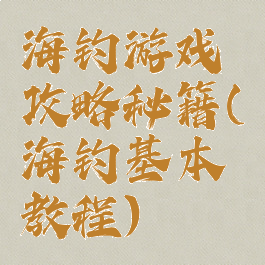 海钓游戏
攻略秘籍(
海钓基本
教程)